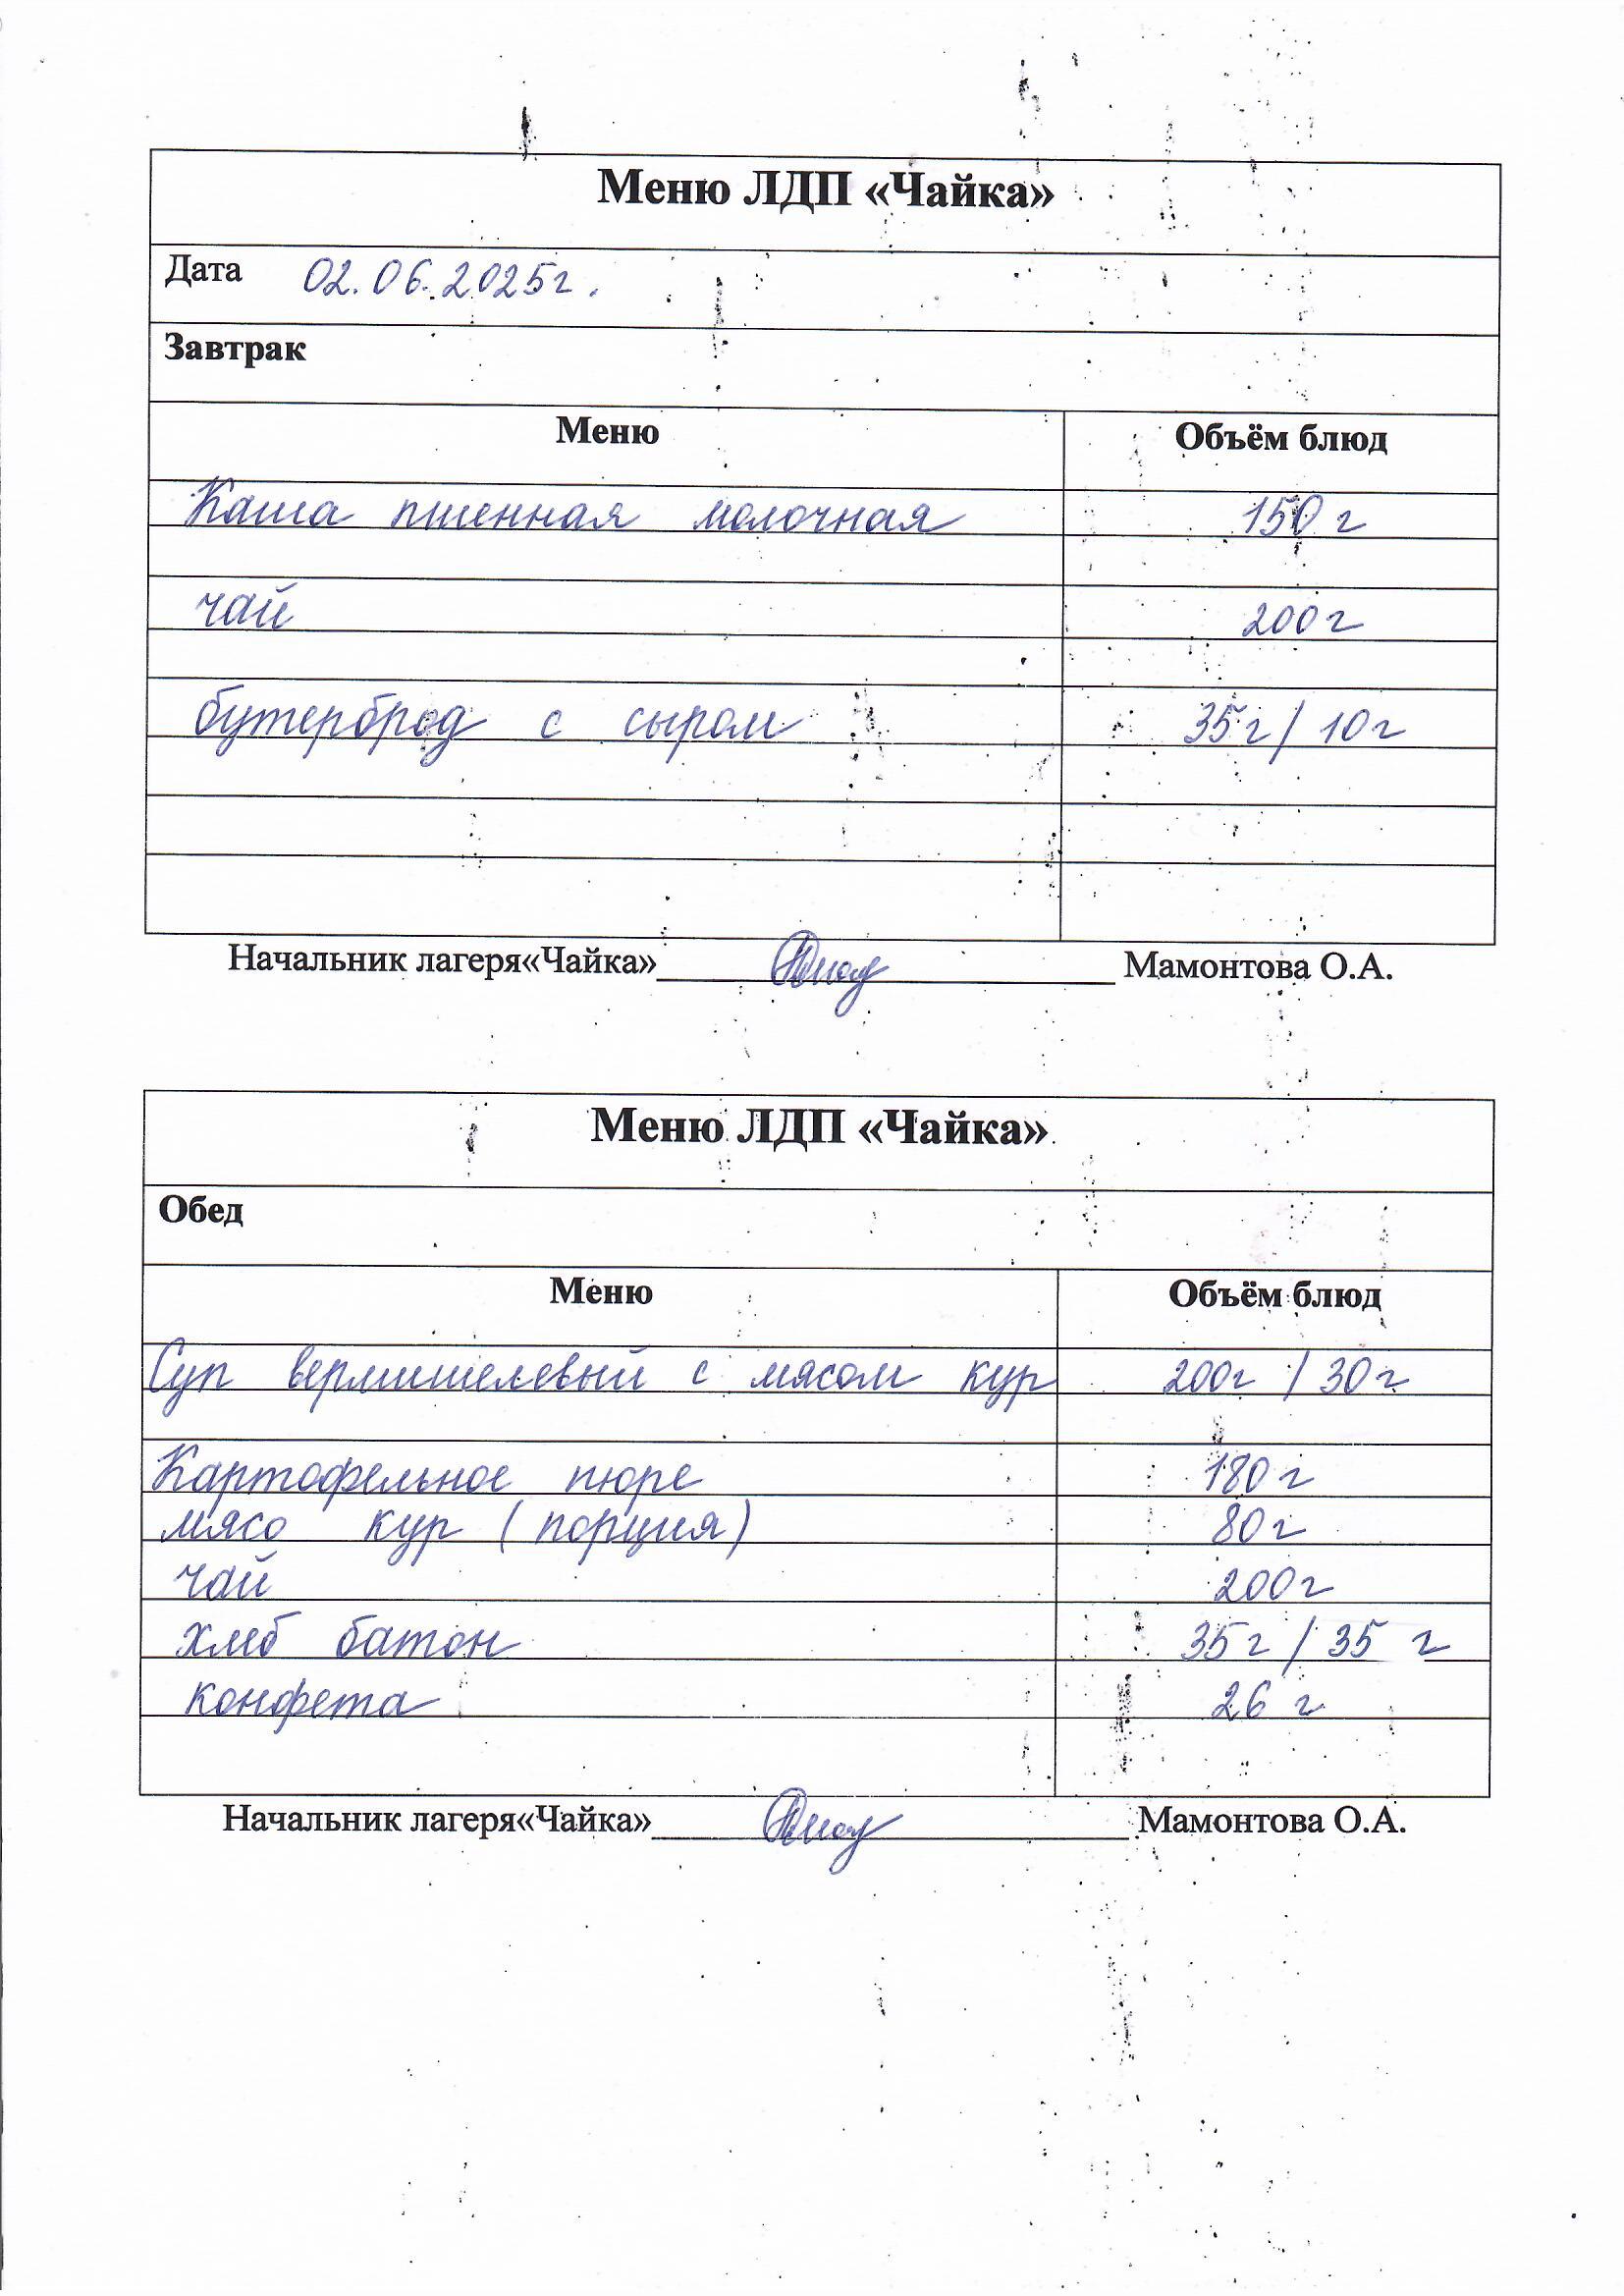 Меню ЛДП «Чайка»
Дата 02.06.2025г.
Завтрак
Меню Объём блюд
Каша пшенная молочная 150 г
чай 200 г
бутерброд с сыром 35 г / 10 г
Начальник лагеря«Чайка» Мамонтова О.А.
Меню ЛДП «Чайка»
Обед
Меню Объём блюд
Суп вермишелевый с мясом кур 200г / 30 г
Картофельное пюре 180 г
мясо кур (порция) 80 г
чай 200 г
хлеб батон 35 г / 35 г
конфета 26 г
Начальник лагеря«Чайка» Мамонтова О.А.